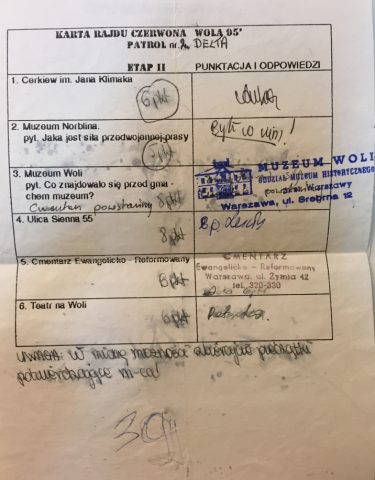 KARTA RAJDU CZERWONA WOLA 95'
PATROL nr. DELTA
ETAP II PUNKTACJA I ODPOWIEDZI
1. Cerkiew im. Jana Klimaka
6 pkt
2. Muzeum Norblina.
Byli w nim!
pyt. Jaka jest siła przedwojennej prasy
pkt
3. Muzeum Woli
pyt. Co znajdowało się przed gma-
chem muzeum?
Cmentarz powstańczy 8 pkt
MUZEUM WOLI
ODDZIAŁ MUZEUM HISTORYCZNEGO
Warszawy
Warszawa, ul. Srebrna 12
4. Ulica Sienna 55
8 pkt
8 p.
5. Cmentarz Ewangelicko - Reformowany
6 pkt
CMENTARZ
Ewangelicko - Reformowany
Warszawa, ul. Żytnia 42
tel. 320-330
6. Teatr na Woli
6 pkt
UWAGA: W miarę możności zbierajcie pieczątki
potwierdzające m-ca!
39